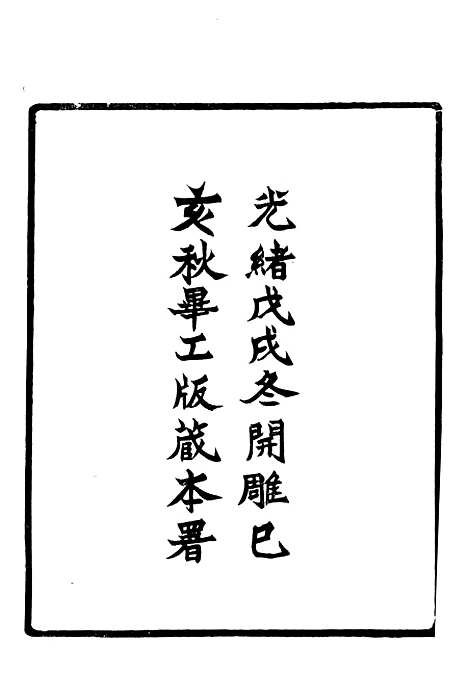 光緒戊戌冬開雕巳
亥秋畢工版蔵本署